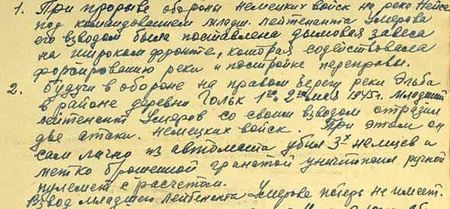 1. При прорыве обороны немецких войск на реке Нейсе
под командованием младш. лейтенанта Умарова
его взводом была поставлена дымовая завеса
на широком фронте, которая содействовала
форсированию реки и постройке переправы.
2. Будучи в обороне на правом берегу реки Эльба
в районе деревни Гольк 1го и 2го мая 1945г. Младший
лейтенант Умаров со своим взводом отразил
две атаки немецких войск. При этом он
сам лично из автомата убил 3х немцев и
метко брошенной гранатой уничтожил ручной
пулемет с расчетом.
Взвод младшего лейтенанта Умарова потерь не имеет.